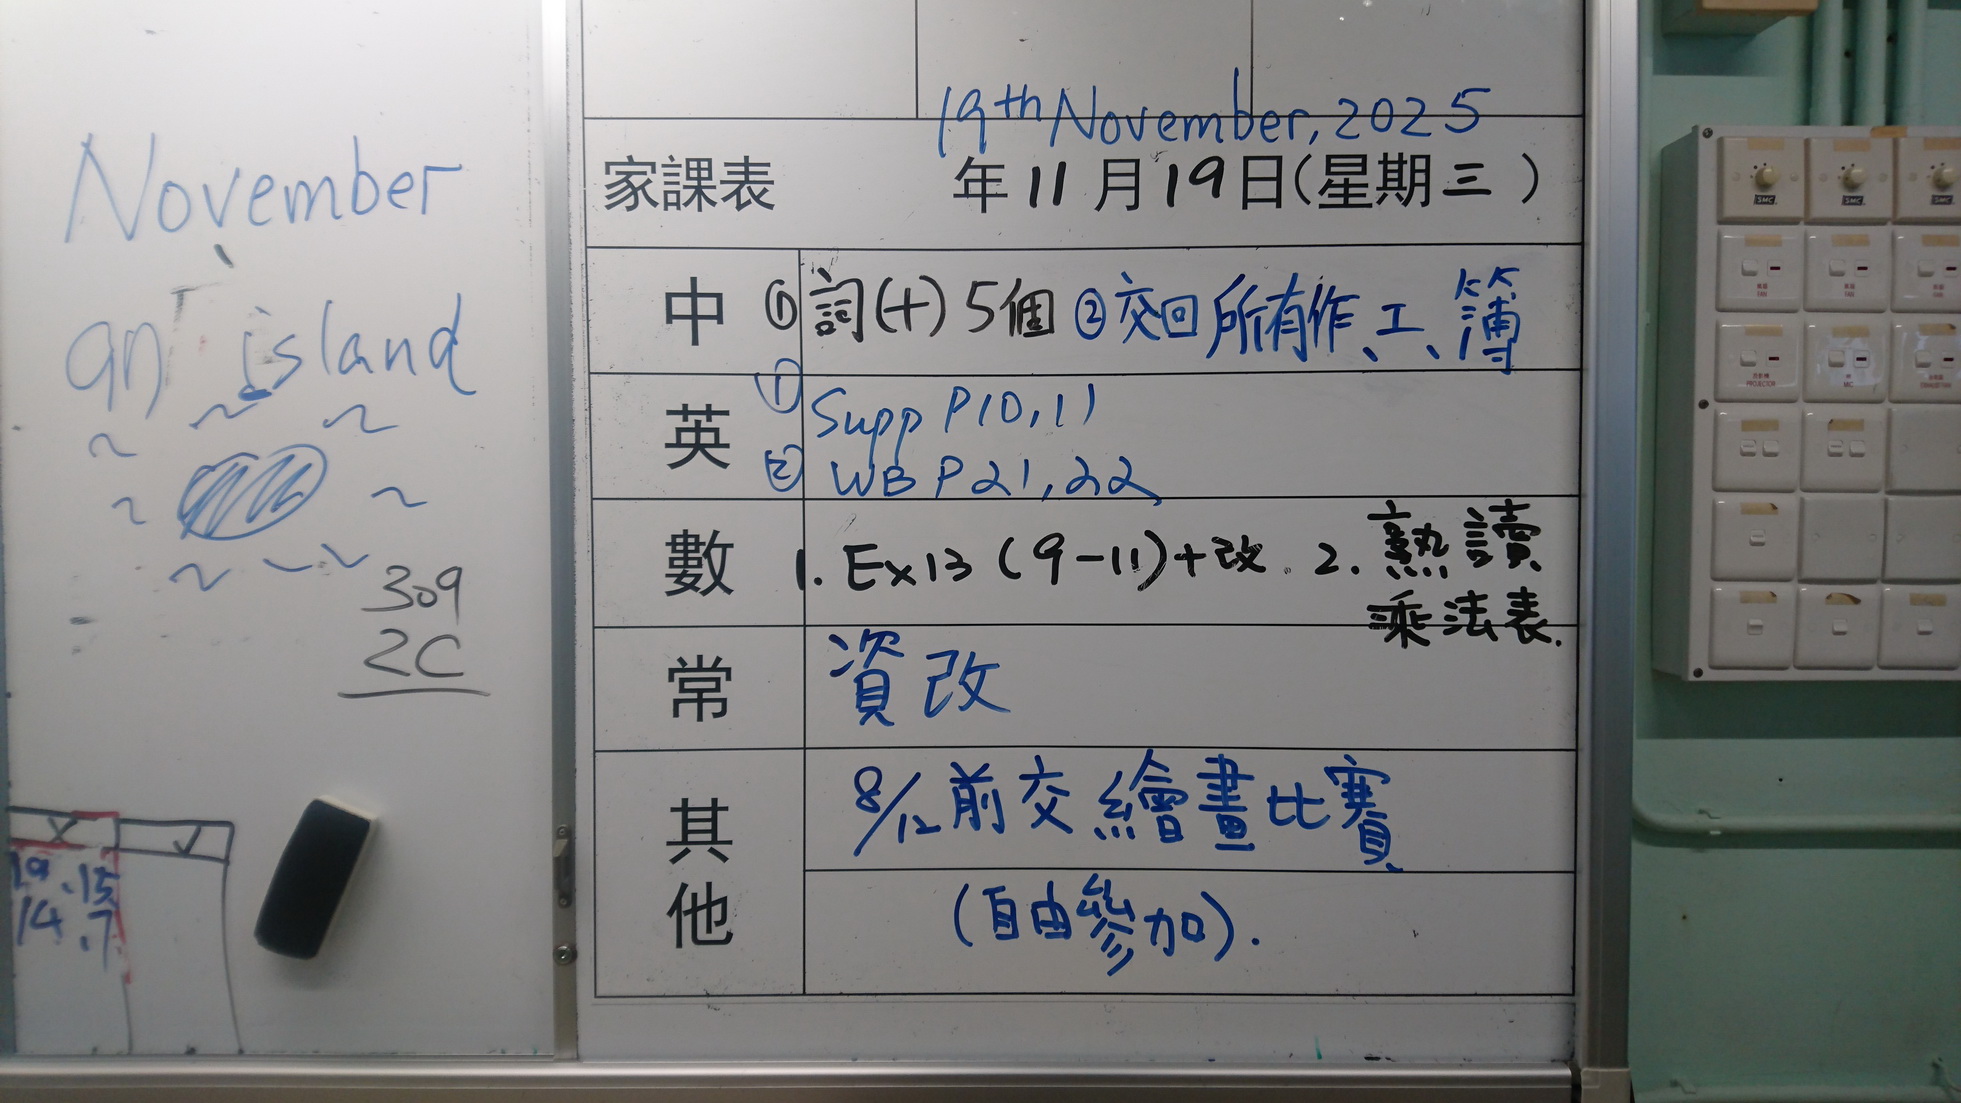 November
an island
309
2C
X ✓
19 .15
14 .7
19th November, 2025
家課表 年11月19日(星期三)
中 ① 詞(十)5個 ②交回所有作、工、簿
英 ① Supp P10,11
② WB P21,22
數 1. Ex13 (9-11)+改. 2. 熟讀
乘法表.
常 資改
其他 8/12前交繪畫比賽
(自由參加).
SMC SMC SMC
PROJECTOR MIC